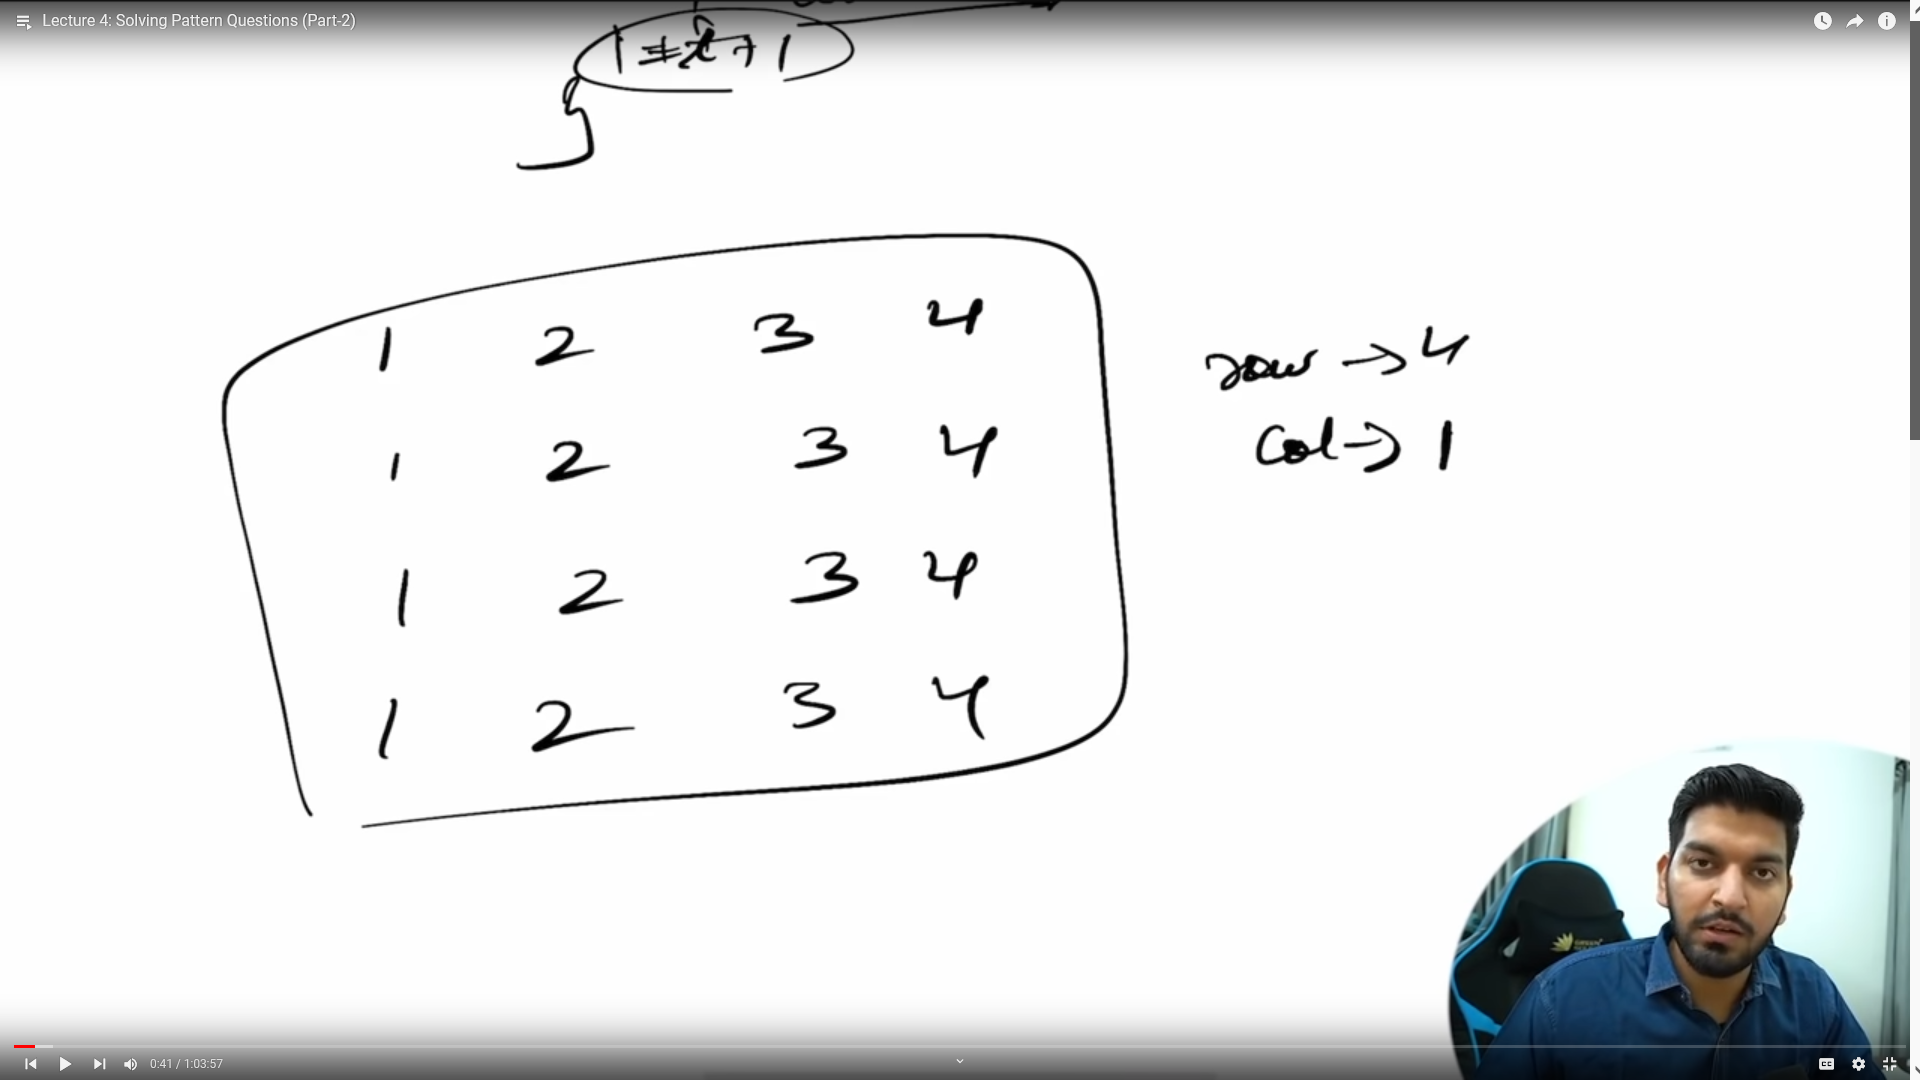 Lecture 4: Solving Pattern Questions (Part-2)
1 2 3 4
1 2 3 4
1 2 3 4
1 2 3 4
row → 4
Col → 1
0:41 / 1:03:57
CC